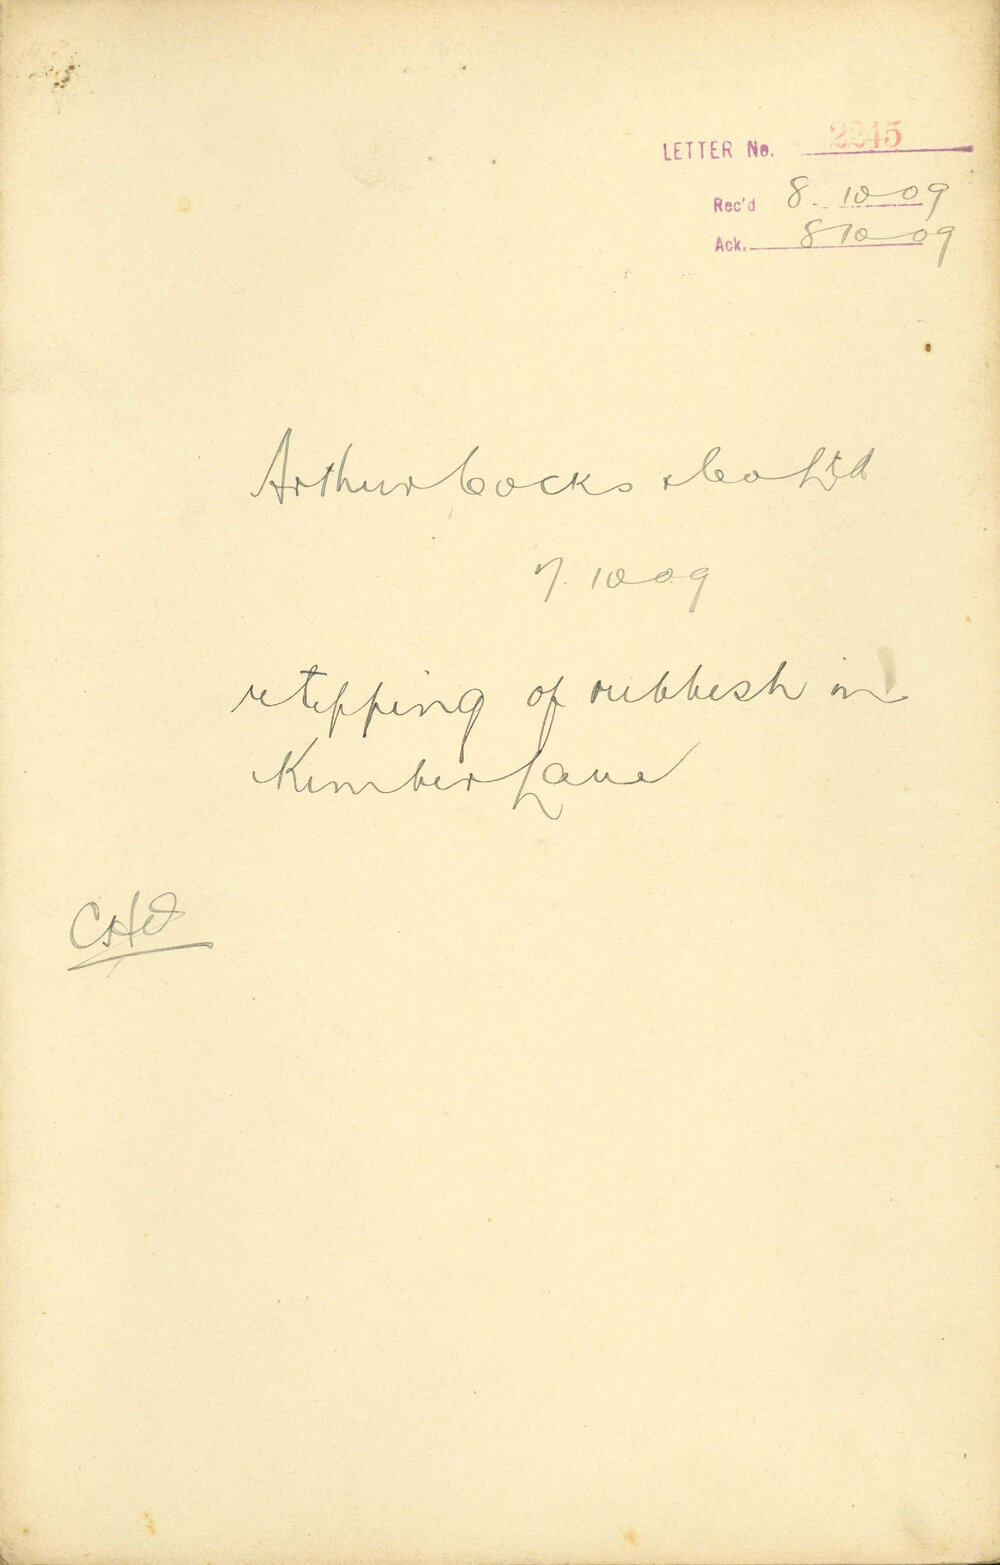 LETTER No. 2245
Rec'd 8.10.09
Ack. 8 10 09
Arthur Cocks & Co Ltd
7.10.09
re tipping of rubbish in
Kimber Lane